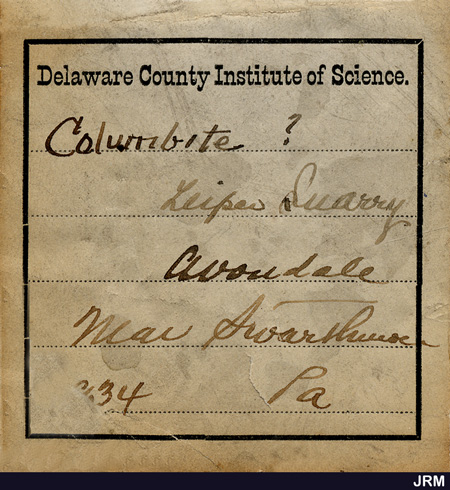 Delaware County Institute of Science.
Columbite ?
Leiper Quarry
Avondale
Near Swarthmore
34 Pa
JRM